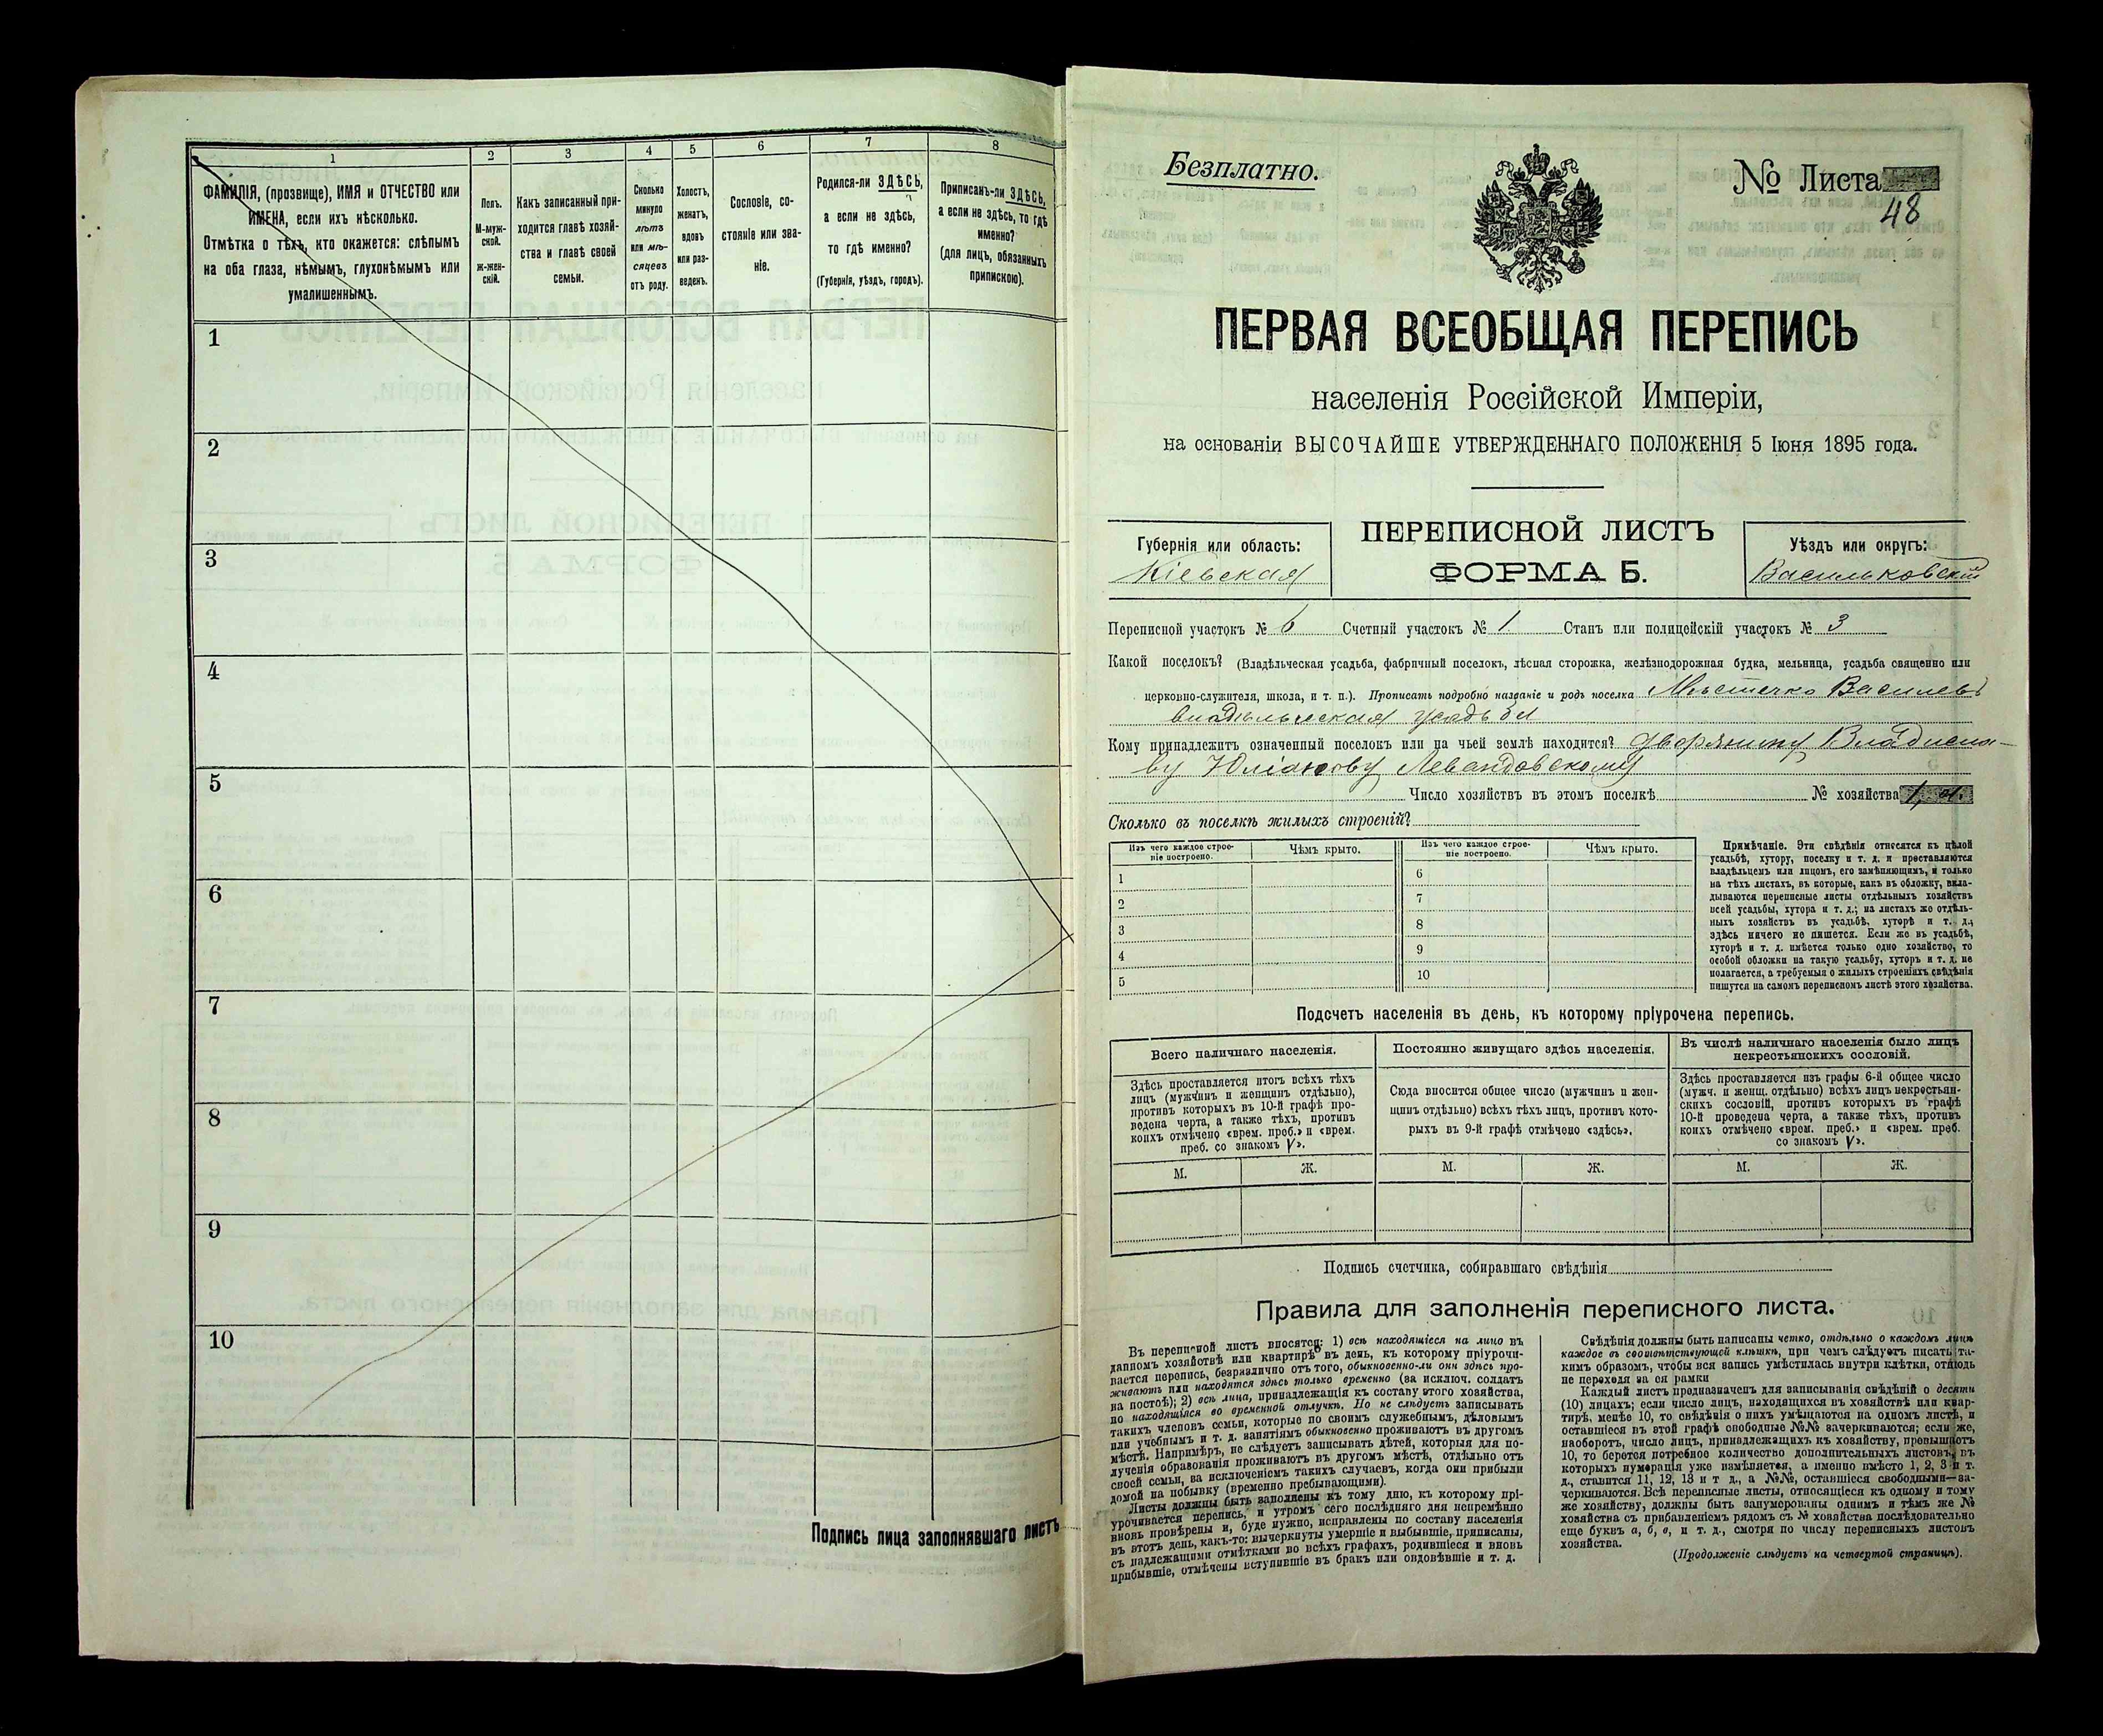 1
2
3
4
5
6
7
8
ФАМИЛІЯ, (прозвище), ИМЯ и ОТЧЕСТВО или
ИМЕНА, если ихъ нѣсколько.
Отмѣтка о тѣхъ, кто окажется: слѣпымъ
на оба глаза, нѣмымъ, глухонѣмымъ или
умалишеннымъ.
Полъ.
М-муж-
ской.
Ж-жен-
скій.
Какъ записанный при-
ходится главѣ хозяй-
ства и главѣ своей
семьи.
Сколько
минуло
лѣтъ
или мѣ-
сяцевъ
отъ роду.
Холостъ,
женатъ,
вдовъ
или раз-
веденъ.
Сословіе, со-
стояніе или зва-
ніе.
Родился-ли ЗДѢСЬ,
а если не здѣсь,
то гдѣ именно?
(Губернія, уѣздъ, городъ).
Приписанъ-ли ЗДѢСЬ,
а если не здѣсь, то гдѣ
именно?
(для лицъ, обязанныхъ
припискою).
1
2
3
4
5
6
7
8
9
10
Подпись лица заполнявшаго листъ
Безплатно.
№ Листа
48
ПЕРВАЯ ВСЕОБЩАЯ ПЕРЕПИСЬ
населенія Россійской Имперіи,
на основаніи ВЫСОЧАЙШЕ УТВЕРЖДЕННАГО ПОЛОЖЕНІЯ 5 Іюня 1895 года.
Губернія или область:
Кіевская
ПЕРЕПИСНОЙ ЛИСТЪ
ФОРМА Б.
Уѣздъ или округъ:
Васильковскій
Переписной участокъ № 6 Счетный участокъ № 1 Станъ или полицейскій участокъ № 3
Какой поселокъ? (Владѣльческая усадьба, фабричный поселокъ, лѣсная сторожка, желѣзнодорожная будка, мельница, усадьба священно или
церковно-служителя, школа, и т. п.). Прописать подробно названіе и родъ поселка Мѣстечко Василевъ
владѣльческая усадьба
Кому принадлежитъ означенный поселокъ или на чьей землѣ находится? дворянину Владисла-
ву Юліанову Левандовскому
Число хозяйствъ въ этомъ поселкѣ № хозяйства 1, а.
Сколько въ поселкѣ жилыхъ строеній?
Изъ чего каждое строе-
ніе построено.
Чѣмъ крыто.
Изъ чего каждое строе-
ніе построено.
Чѣмъ крыто.
1
2
3
4
5
6
7
8
9
10
Примѣчаніе. Эти свѣдѣнія относятся къ цѣлой
усадьбѣ, хутору, поселку и т. д. и проставляются
владѣльцемъ или лицомъ, его замѣняющимъ, и только
на тѣхъ листахъ, въ которые, какъ въ обложку, вкла-
дываются переписные листы отдѣльныхъ хозяйствъ
всей усадьбы, хутора и т. д.; на листахъ же отдѣль-
ныхъ хозяйствъ въ усадьбѣ, хуторѣ и т. д.,
здѣсь ничего не пишется. Если же въ усадьбѣ,
хуторѣ и т. д. имѣется только одно хозяйство, то
особой обложки на такую усадьбу, хуторъ и т. д. не
полагается, а требуемыя о жилыхъ строеніяхъ свѣдѣнія
пишутся на самомъ переписномъ листѣ этого хозяйства.
Подсчетъ населенія въ день, къ которому пріурочена перепись.
Всего наличнаго населенія.
Здѣсь проставляется итогъ всѣхъ тѣхъ
лицъ (мужчинъ и женщинъ отдѣльно),
противъ которыхъ въ 10-й графѣ про-
ведена черта, а также тѣхъ, противъ
коихъ отмѣчено «врем. преб.» и «врем.
преб. со знакомъ V».
М.
Ж.
Постоянно живущаго здѣсь населенія.
Сюда вносится общее число (мужчинъ и жен-
щинъ отдѣльно) всѣхъ тѣхъ лицъ, противъ кото-
рыхъ въ 9-й графѣ отмѣчено «здѣсь».
М.
Ж.
Въ числѣ наличнаго населенія было лицъ
некрестьянскихъ сословій.
Здѣсь проставляется изъ графы 6-й общее число
(мужч. и женщ. отдѣльно) всѣхъ лицъ некрестьян-
скихъ сословій, противъ которыхъ въ графѣ
10-й проведена черта, а также тѣхъ, противъ
коихъ отмѣчено «врем. преб.» и «врем. преб.
со знакомъ V».
М.
Ж.
Подпись счетчика, собиравшаго свѣдѣнія
Правила для заполненія переписного листа.
Въ переписной листъ вносятся: 1) всѣ находящіеся на лицо въ
данномъ хозяйствѣ или квартирѣ въ день, къ которому пріурочи-
вается перепись, безразлично отъ того, обыкновенно-ли они здѣсь про-
живаютъ или находятся здѣсь только временно (за исключ. солдатъ
на постоѣ); 2) всѣ лица, принадлежащія къ составу этого хозяйства,
но находящіяся во временной отлучкѣ. Но не слѣдуетъ записывать
такихъ членовъ семьи, которые по своимъ служебнымъ, дѣловымъ
или учебнымъ и т. д. занятіямъ обыкновенно проживаютъ въ другомъ
мѣстѣ. Напримѣръ, не слѣдуетъ записывать дѣтей, которыя для по-
лученія образованія проживаютъ въ другомъ мѣстѣ, отдѣльно отъ
своей семьи, за исключеніемъ такихъ случаевъ, когда они прибыли
домой на побывку (временно пребывающими).
Листы должны быть заполнены къ тому дню, къ которому прі-
урочивается перепись, и утромъ сего послѣдняго дня непремѣнно
вновь провѣрены и, буде нужно, исправлены по составу населенія
въ этотъ день, какъ-то: вычеркнуты умершіе и выбывшіе, приписаны,
съ надлежащими отмѣтками во всѣхъ графахъ, родившіеся и вновь
прибывшіе, отмѣчены вступившіе въ бракъ или овдовѣвшіе и т. д.
Свѣдѣнія должны быть написаны четко, отдѣльно о каждомъ лицѣ
каждое въ соотвѣтствующей клѣткѣ, при чемъ слѣдуетъ писать та-
кимъ образомъ, чтобы вся запись умѣстилась внутри клѣтки, отнюдь
не переходя за ея рамки
Каждый листъ предназначенъ для записыванія свѣдѣній о десяти
(10) лицахъ; если число лицъ, находящихся въ хозяйствѣ или квар-
тирѣ, менѣе 10, то свѣдѣнія о нихъ умѣщаются на одномъ листѣ, и
оставшіеся въ этой графѣ свободные №№ зачеркиваются; если же,
наоборотъ, число лицъ, принадлежащихъ къ хозяйству, превышаетъ
10, то берется потребное количество дополнительныхъ листовъ, въ
которыхъ нумерація уже измѣняется, а именно вмѣсто 1, 2, 3 и т.
д., ставится 11, 12, 13 и т д., а №№, оставшіеся свободными—за-
черкиваются. Всѣ переписные листы, относящіеся къ одному и тому
же хозяйству, должны быть занумерованы однимъ и тѣмъ же №
хозяйства съ прибавленіемъ рядомъ съ № хозяйства послѣдовательно
еще буквъ а, б, в, и т. д., смотря по числу переписныхъ листовъ
хозяйства.
(Продолженіе слѣдуетъ на четвертой страницѣ).